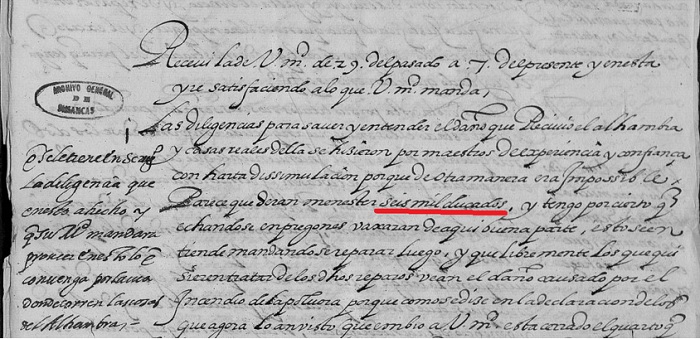 Receui la de Vm. de 29. del pasado a 7. del presente y en esta
yre satisfaciendo a lo que Vm. manda,
ARCHIVO GENERAL
DE
SIMANCAS
Las diligencias para sauer y entender el daño que Reciuio el alhambra
y casas reales della se hisieron por maestros de experiencia y confiança
con harta dissimulacion porque de otra manera era Impossible.
Parece que seran menester seis mil ducados, y tengo por cierto q
echandose en pregones vaxaran de aqui buena parte, esto se en
tiende mandandose reparar luego, y que libremente los que qui
sieren tratar de los dhos reparos vean el daño causado por el
Incendio de la poluora porque como se dise en la declaracion de los
que agora lo an visto que embio a Vm. esta cerrado el quarto q
la diligencia que
en esto a hecho y
q su Md mandara
proueer en esto lo q
conuenga por la via
donde corren las cosas
del Alhambra,